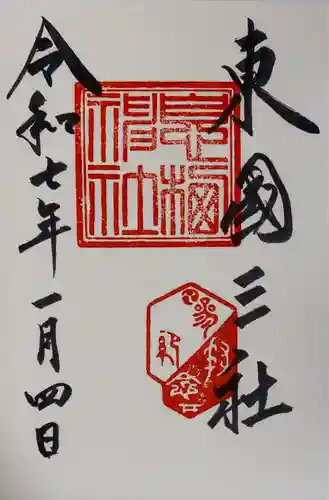 東國三社
息栖
神社
令和七年一月四日